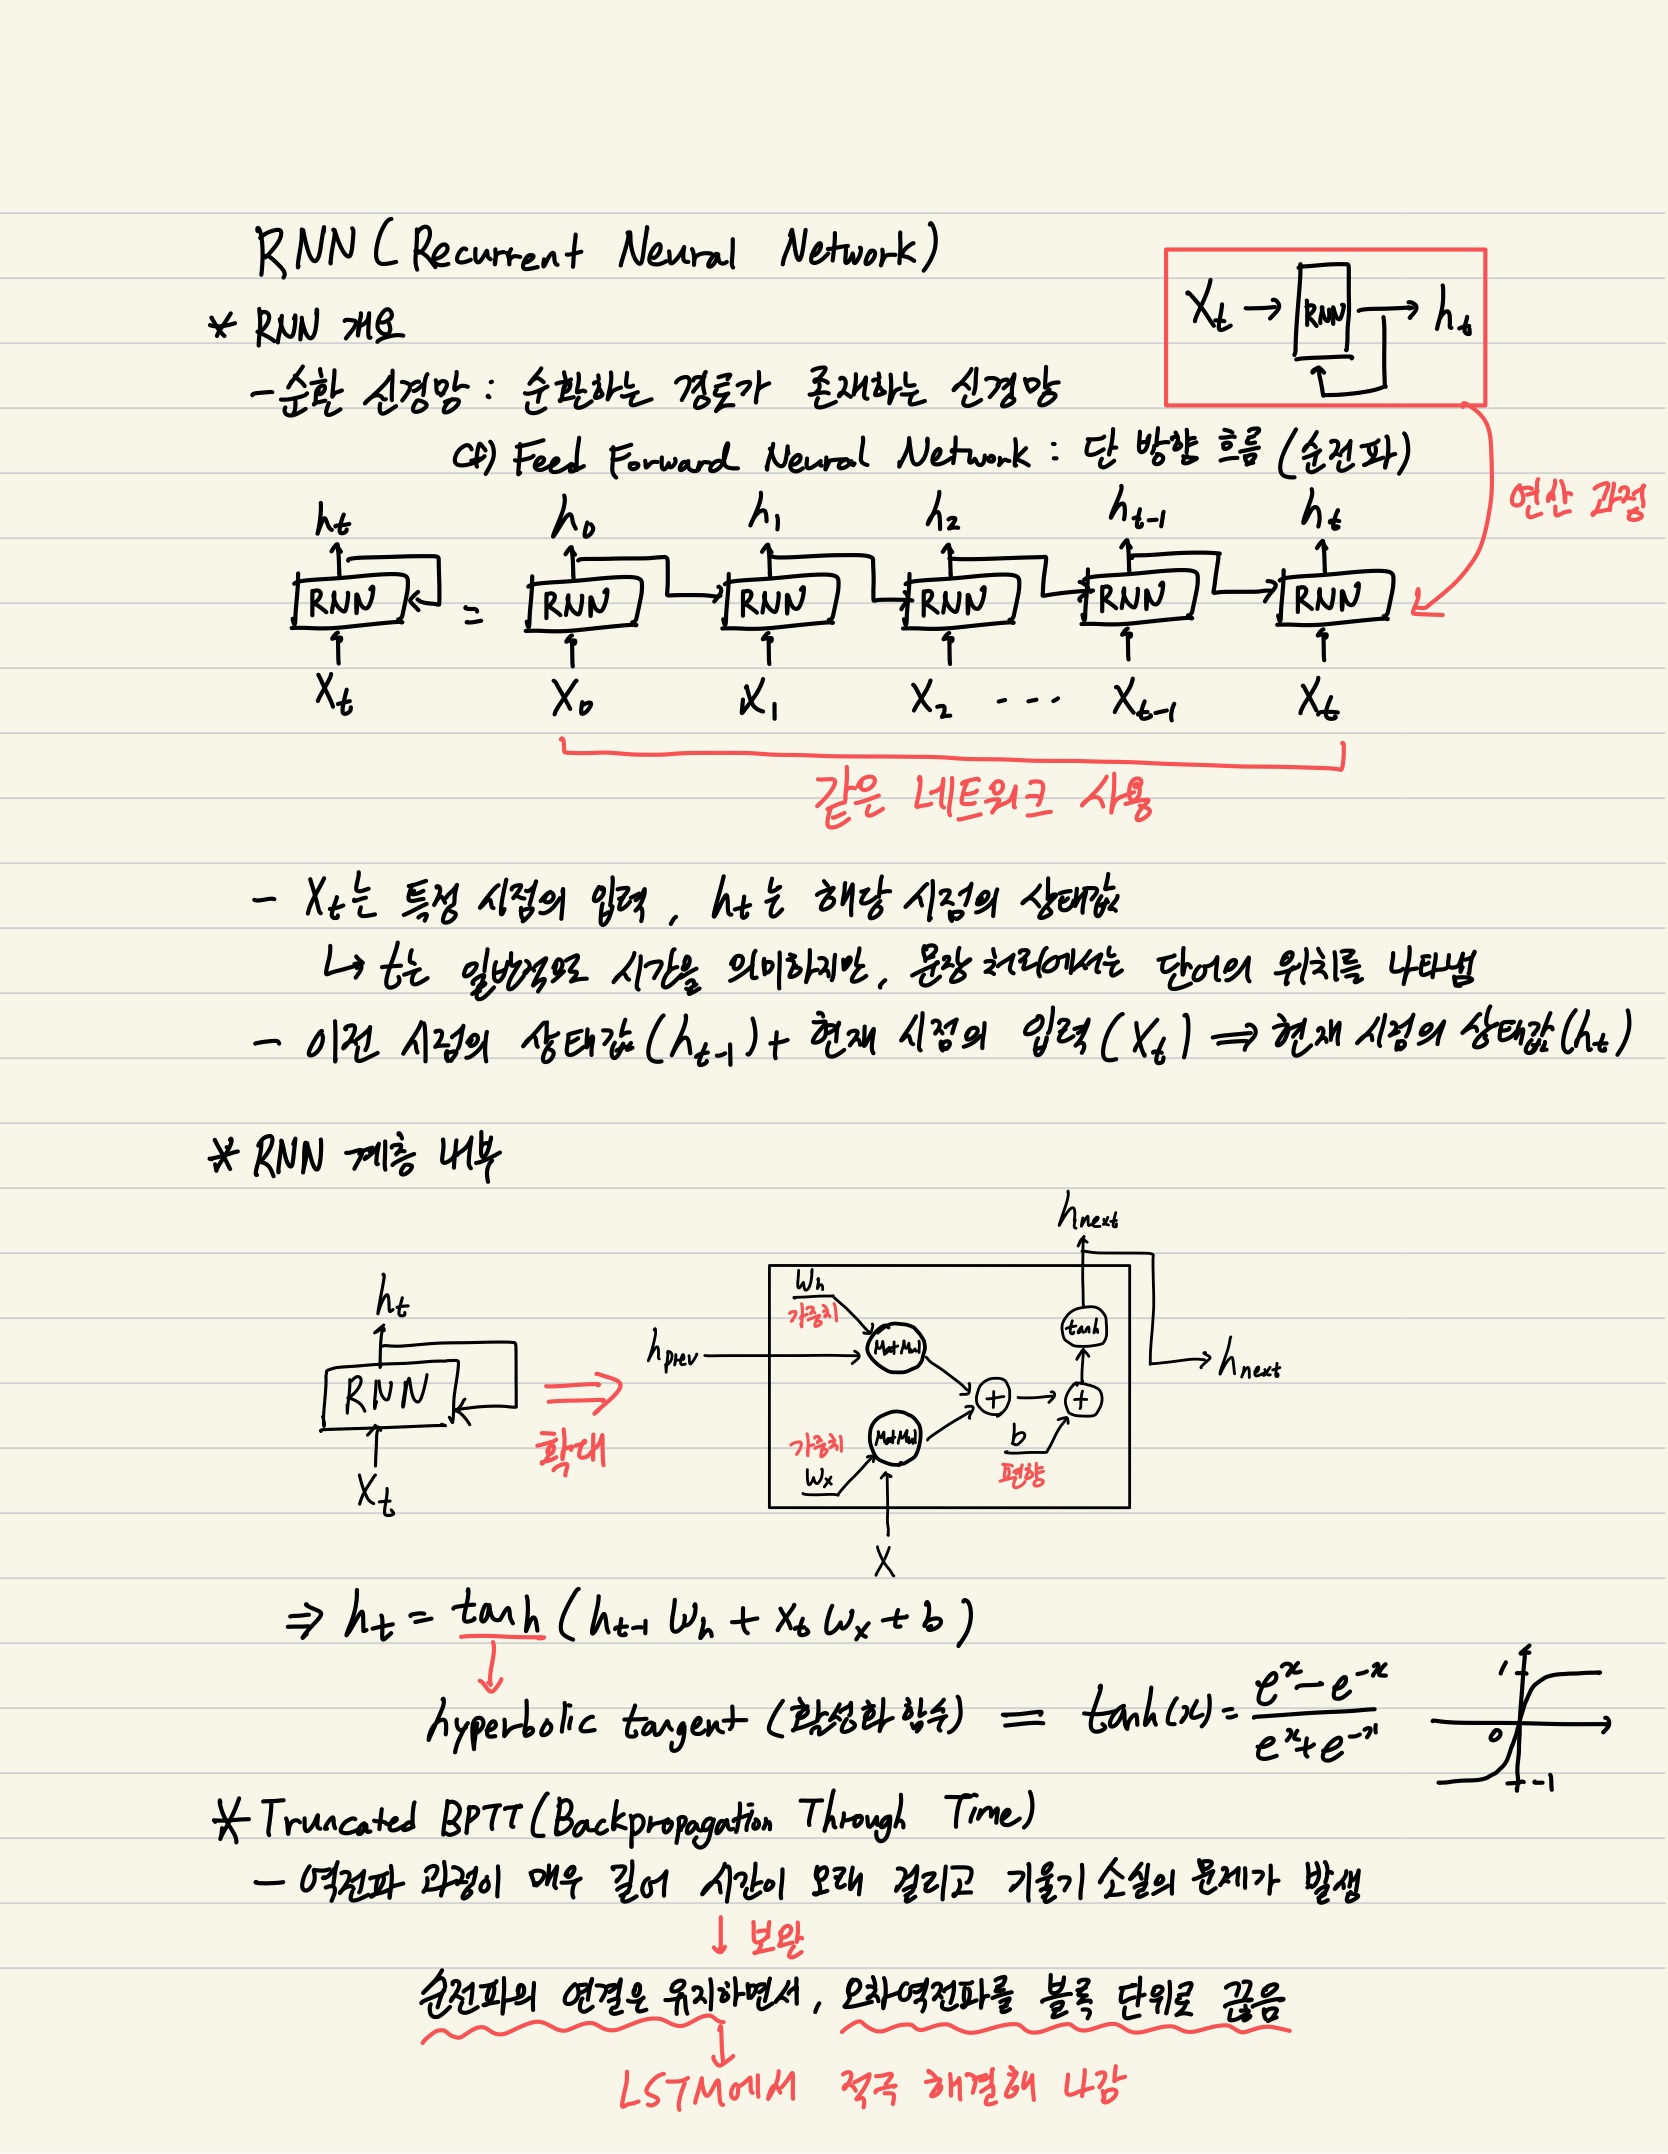 RNN (Recurrent Neural Network)
* RNN 개요
Xt → RNN → ht
- 순환 신경망 : 순환하는 경로가 존재하는 신경망
cf) Feed Forward Neural Network : 단 방향 흐름 (순전파)
연산 과정
ht h0 h1 h2 ht-1 ht
RNN = RNN RNN RNN RNN RNN
Xt X0 X1 X2 ---- Xt-1 Xt
같은 네트워크 사용
- Xt는 특정 시점의 입력, ht는 해당 시점의 상태값
↳ t는 일반적으로 시간을 의미하지만, 문장 처리에서는 단어의 위치를 나타냄
- 이전 시점의 상태값(ht-1) + 현재 시점의 입력(Xt) ⇒ 현재 시점의 상태값(ht)
* RNN 계층 내부
hnext
ht
Wh
가중치
tanh
hprev
MatMul
hnext
RNN
⇒
+ +
확대
가중치
MatMul
b
Wx
편향
Xt
X
⇒ ht = tanh (ht-1 Wh + Xt Wx + b)
hyperbolic tangent (활성화 함수) = tanh(x) = (e^x - e^-x) / (e^x + e^-x)
1
0
-1
* Truncated BPTT (Backpropagation Through Time)
- 역전파 과정이 매우 길어 시간이 오래 걸리고 기울기 소실의 문제가 발생
↓ 보완
순전파의 연결은 유지하면서, 오차역전파를 블록 단위로 끊음
LSTM에서 적극 해결해 나감